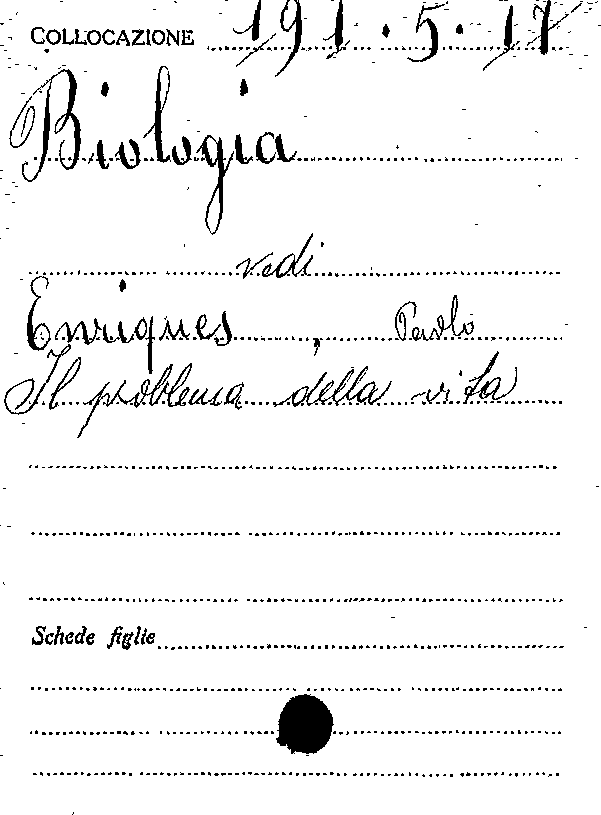 COLLOCAZIONE 191.5.17
Biologia
vedi
Enriques, Paolo
Il problema della vita
Schede figlie